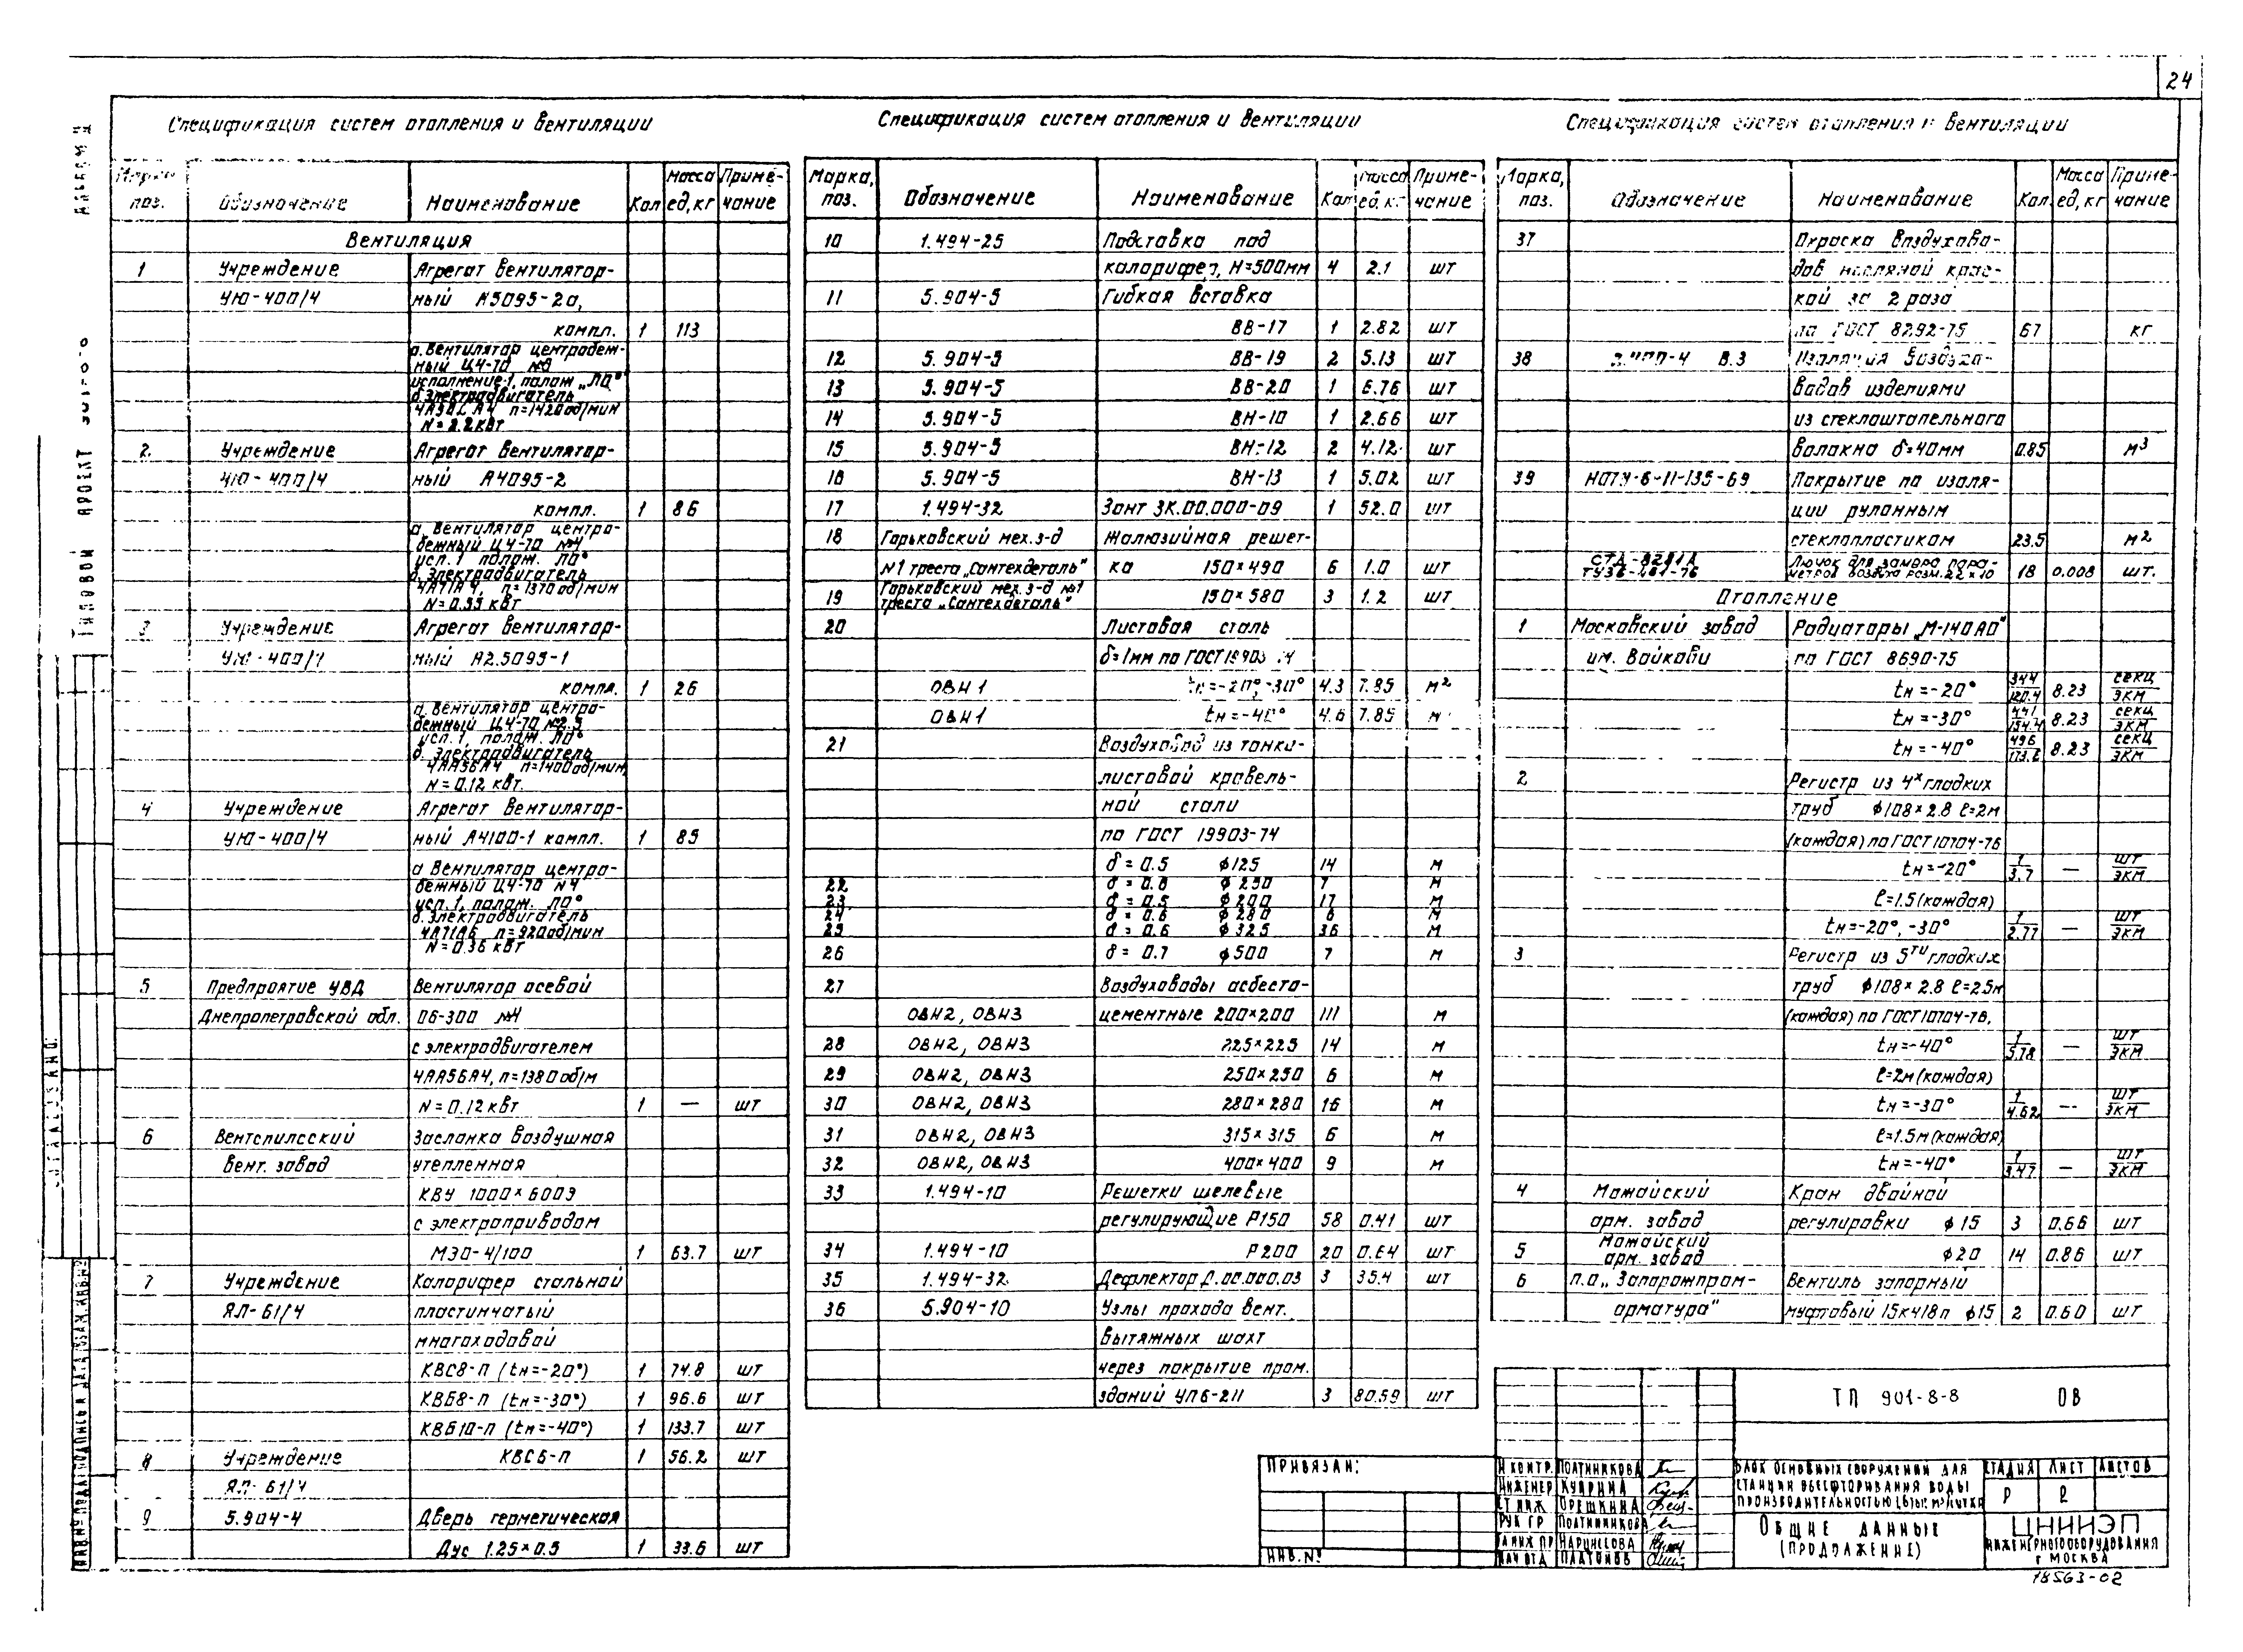 24
Спецификация систем отопления и вентиляции
Марка поз. Обозначение Наименование Кол Масса ед, кг Приме-чание
Вентиляция
1 Учреждение Агрегат вентилятор-
УЮ-400/4 ный А5095-2а,
компл. 1 113
а. Вентилятор центробеж-
ный Ц4-70 №5
исполнение-1, полож „Л0°
б. Электродвигатель
4А90LА4 n=1420об/мин
N=2.2кВт
2. Учреждение Агрегат вентилятор-
УЮ-400/4 ный А4095-2
компл. 1 86
а. Вентилятор центро-
бежный Ц4-70 №4
усп. 1 полож. Л0°
б. Электродвигатель
4А71А4, n=1370об/мин
N=0.55 кВт
3 Учреждение Агрегат вентилятор-
ный А2.5095-1
компл. 1 26
а. Вентилятор центро-
бежный Ц4-70 №2.5
усп. 1, полож. Л0°
б. Электродвигатель
4АА56А4 n=1400об/мин
N=0.12 кВт.
4 Учреждение Агрегат вентилятор-
УЮ-400/4 ный А4100-1 компл. 1 85
а Вентилятор центро-
бежный Ц4-70 №4
усп. 1, полож. Л0°
б. Электродвигатель
4А71А6 n=920об/мин
N=0.36 кВт
5 Предприятие УВД Вентилятор осевой
Днепропетровской обл. 06-300 №4
с электродвигателем
4АА56А4, n=1380об/м
N=0.12кВт 1 — шт
6 Вентспилсский Заслонка воздушная
вент. завод утепленная
КВУ 1000×600Э
с электроприводом
МЭО-4/100 1 63.7 шт
7 Учреждение Калорифер стальной
ЯЛ-61/4 пластинчатый
многоходовой
КВС8-П (tн=-20°) 1 74.8 шт
КВБ8-П (tн=-30°) 1 96.6 шт
КВБ10-П (tн=-40°) 1 133.7 шт
8 Учреждение КВС6-П 1 56.2 шт
ЯЛ-61/4
9 5.904-4 Дверь герметическая
Дус 1.25×0.5 1 33.6 шт
Спецификация систем отопления и вентиляции
Марка, поз. Обозначение Наименование Кол Масса ед, кг Приме-чание
10 1.494-25 Подставка под
калорифер, H=500мм 4 2.1 шт
11 5.904-5 Гибкая вставка
ВВ-17 1 2.82 шт
12 5.904-5 ВВ-19 2 5.13 шт
13 5.904-5 ВВ-20 1 6.76 шт
14 5.904-5 ВН-10 1 2.66 шт
15 5.904-5 ВН-12 2 4.12 шт
16 5.904-5 ВН-13 1 5.02 шт
17 1.494-32 Зонт ЗК.00.000-09 1 52.0 шт
18 Горьковский мех. з-д Жалюзийная решет-
№1 треста „Сантехдеталь" ка 150×490 6 1.0 шт
19 Горьковский мех. з-д №1
треста „Сантехдеталь" 150×580 3 1.2 шт
20 Листовая сталь
δ=1мм по ГОСТ 19903-74
ОВН1 tн=-20°,-30° 4.3 7.85 м²
ОВН1 tн=-40° 4.6 7.85 м
21 Воздуховод из тонко-
листовой кровель-
ной стали
по ГОСТ 19903-74
δ=0.5 ф125 14 м
22 δ=0.6 ф250 7 м
23 δ=0.5 ф200 17 м
24 δ=0.6 ф280 6 м
25 δ=0.6 ф325 36 м
26 δ=0.7 ф500 7 м
27 Воздуховоды асбесто-
ОВН2, ОВН3 цементные 200×200 111 м
28 ОВН2, ОВН3 225×225 14 м
29 ОВН2, ОВН3 250×250 6 м
30 ОВН2, ОВН3 280×280 16 м
31 ОВН2, ОВН3 315×315 6 м
32 ОВН2, ОВН3 400×400 9 м
33 1.494-10 Решетки щелевые
регулирующие Р150 58 0.41 шт
34 1.494-10 Р200 20 0.64 шт
35 1.494-32. Дефлектор Д.00.000.03 3 35.4 шт
36 5.904-10 Узлы прохода вент.
вытяжных шахт
через покрытие пром.
зданий УП6-211 3 80.59 шт
Спецификация систем отопления и вентиляции
Марка, поз. Обозначение Наименование Кол Масса ед, кг Приме-чание
37 Окраска воздухово-
дов масляной крас-
кой за 2 раза
по ГОСТ 8292-75 67 кг
38 В.3 Изоляция воздухо-
водов изделиями
из стеклоштапельного
волокна δ=40мм 0.85 м³
39 НОТУ-6-11-135-69 Покрытие по изоля-
ции рулонным
стеклопластиком 23.5 м²
СТД-8291А Лючок для замера пара-
ТУ36-461-76 метров воздуха разм. 22×10 18 0.008 шт.
Отопление
1 Московский завод Радиаторы „М-140АО"
им. Войкова по ГОСТ 8690-75
tн=-20° 344/120.4 8.23 секц/экм
tн=-30° 441/154.4 8.23 секц/экм
tн=-40° 496/173.6 8.23 секц/экм
2 Регистр из 4х гладких
труб ф108×2.8 ℓ=2м
(каждая) по ГОСТ 10704-76
tн=-20° 1/3.7 — шт/экм
ℓ=1.5(каждая)
tн=-20°, -30° 1/2.77 — шт/экм
3 Регистр из 5ти гладких
труб ф108×2.8 ℓ=2.5м
(каждая) по ГОСТ 10704-76,
tн=-40° 1/5.78 — шт/экм
ℓ=2м(каждая)
tн=-30° 1/4.62 — шт/экм
ℓ=1.5м(каждая)
tн=-40° 1/3.47 — шт/экм
4 Можайский Кран двойной
арм. завод регулировки ф15 3 0.66 шт
5 Можайский
арм. завод ф20 14 0.86 шт
6 п.о „Запорожпром- Вентиль запорный
арматура" муфтовый 15кч18п ф15 2 0.60 шт
ТП 901-8-8 ОВ
Привязан:
Инв.№
Н контр. Полтинникова
Инженер Куприна
Ст инж Орешкина
Рук гр Полтинникова
Нач отд Платонов
Блок основных сооружений для
станции обесфторивания воды
производительностью
Стадия Лист Листов
Р 2
Общие данные
(продолжение)
ЦНИИЭП
инженерного оборудования
г Москва
18563-02
Типовой проект
Альбом
Согласовано:
Инв.№ подл Подпись и дата Взам. инв.№